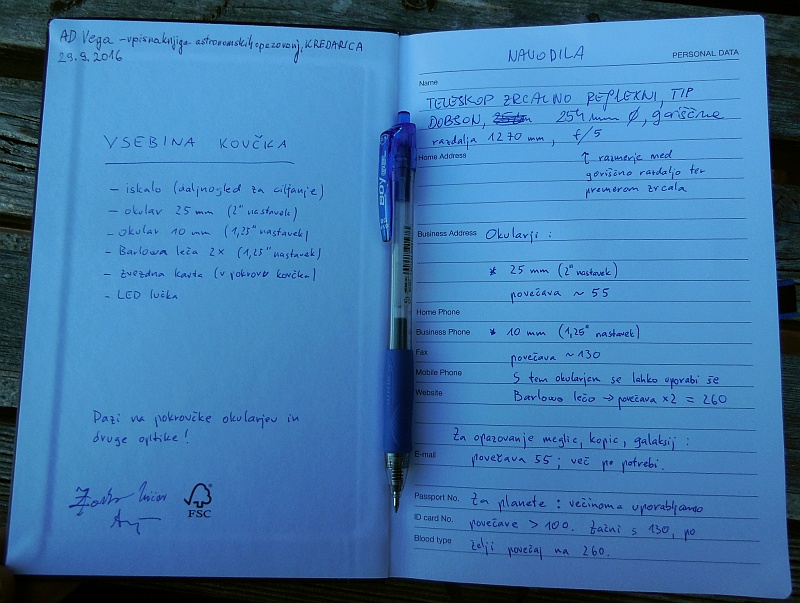 AD Vega - vpisna knjiga astronomskih opazovanj, KREDARICA
29.9.2016
VSEBINA KOVČKA
- iskalo (daljnogled za ciljanje)
- okular 25 mm (2" nastavek)
- okular 10 mm (1,25" nastavek)
- Barlowa leča 2x (1,25" nastavek)
- zvezdna karta (v pokrovu kovčka)
- LED lučka
Pazi na pokrovčke okularjev in
druge optike!
FSC
BOY
NAVODILA
PERSONAL DATA
Name
TELESKOP ZRCALNO REFLEKNI, TIP
DOBSON, 254 mm Ø, goriščna
razdalja 1270 mm, f/5
Home Address
↑ razmerje med
goriščno razdaljo ter
premerom zrcala
Business Address
Okularji:
* 25 mm (2" nastavek)
povečava ~ 55
Home Phone
Business Phone
* 10 mm (1,25" nastavek)
Fax
povečava ~130
Mobile Phone
S tem okularjem se lahko uporabi še
Website
Barlowo lečo → povečava x2 = 260
Za opazovanje meglic, kopic, galaksij:
E-mail
povečava 55; več po potrebi.
Passport No.
Za planete: večinoma uporabljamo
ID card No.
povečave > 100. Začni s 130, po
Blood type
želji povečaj na 260.